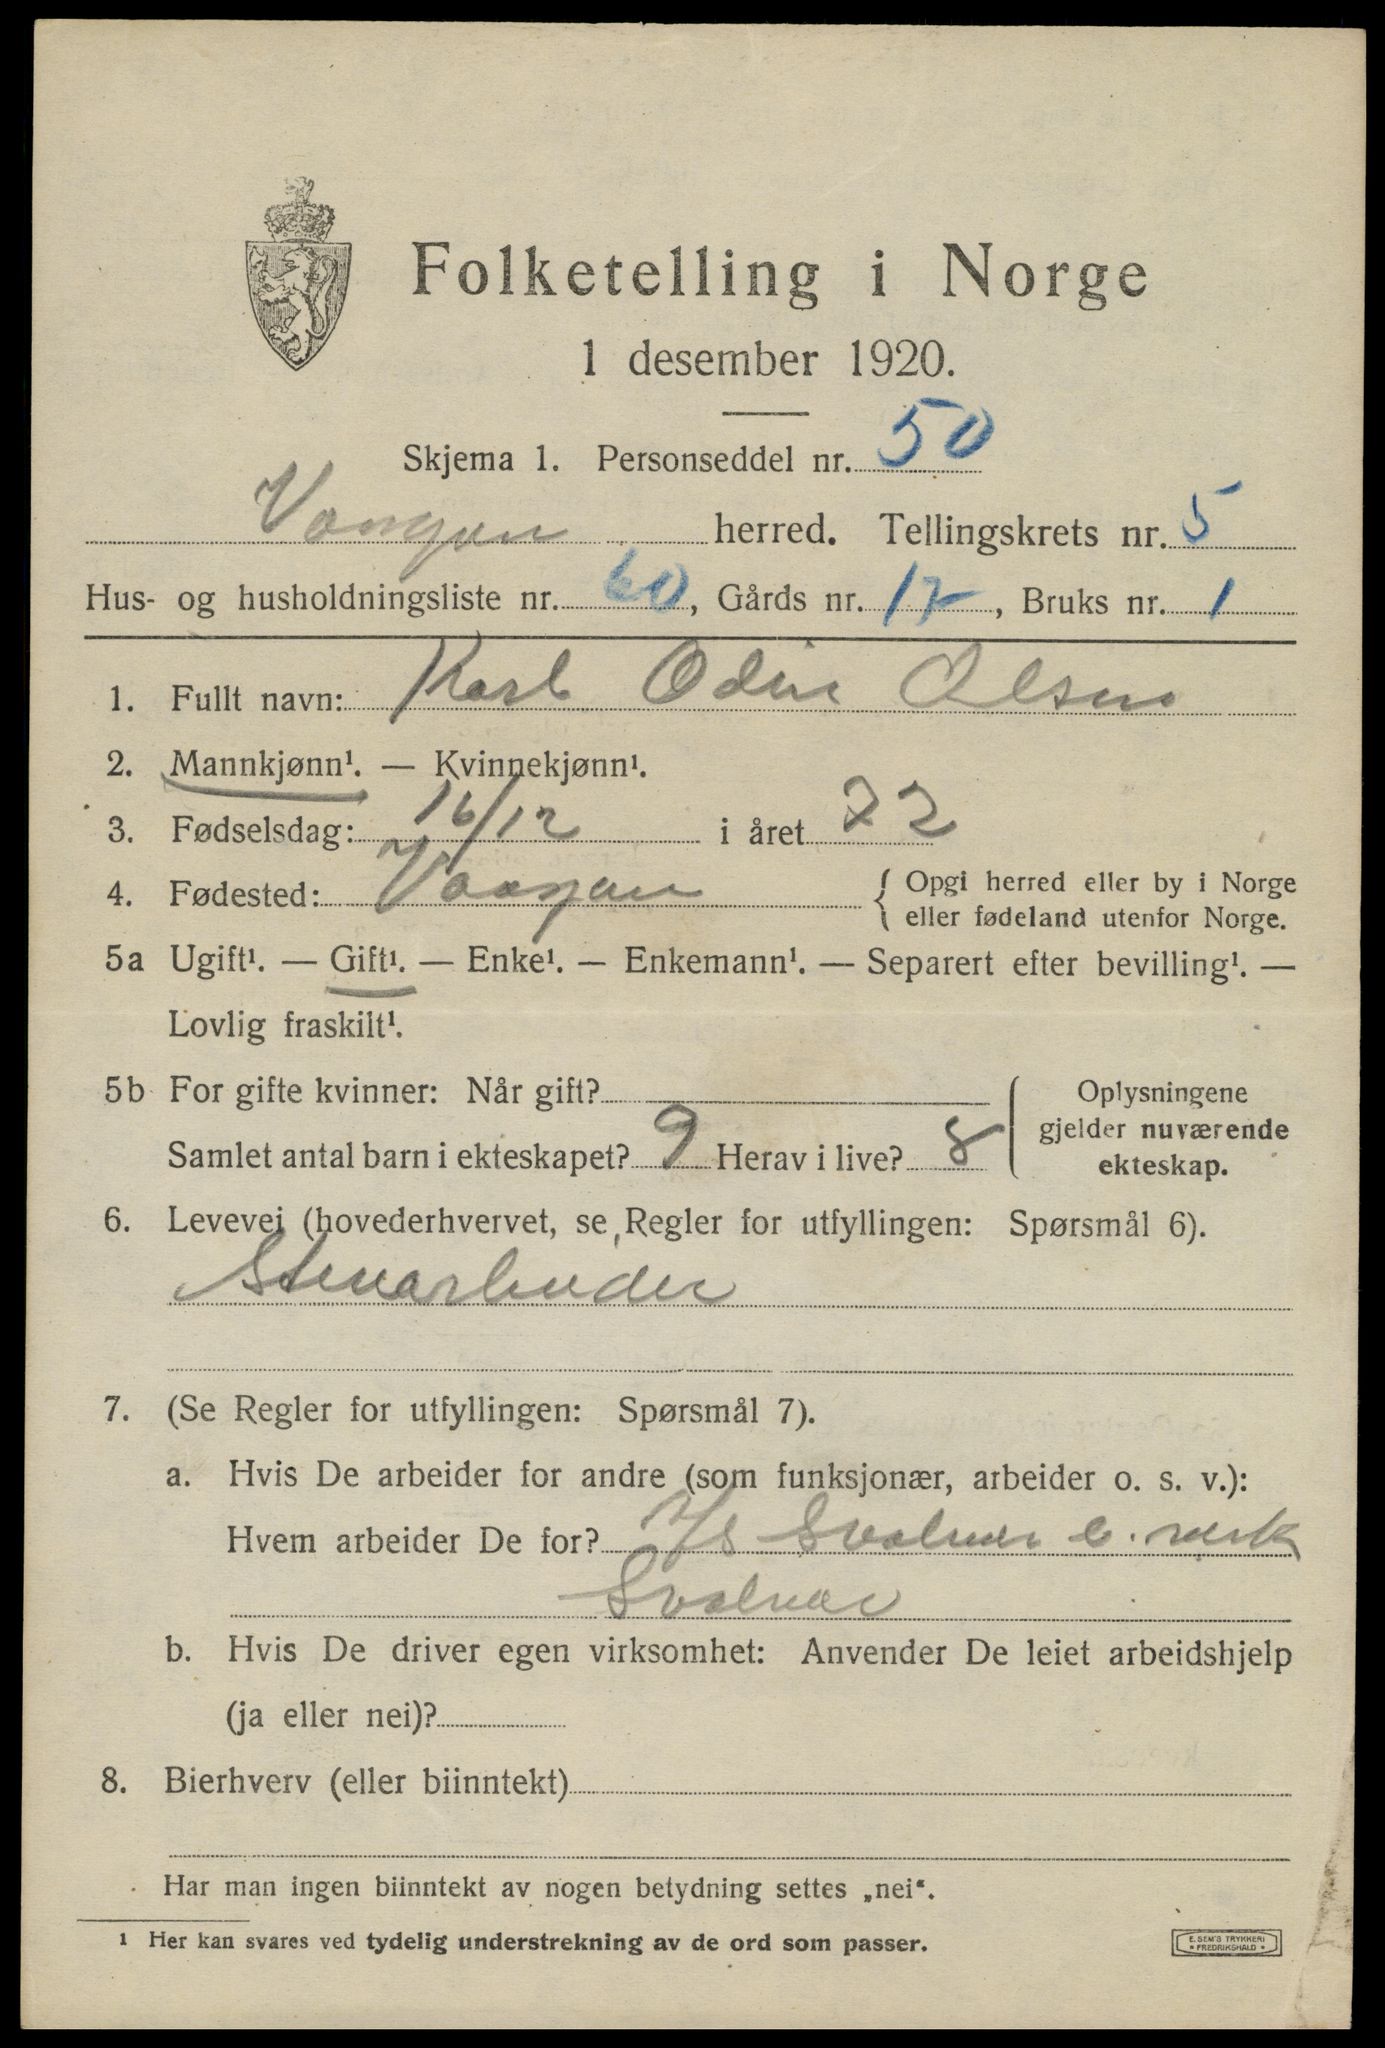 Folketelling i Norge
1 desember 1920.
Skjema 1. Personseddel nr. 50
Vaagan herred. Tellingskrets nr. 5
Hus- og husholdningsliste nr. 60, Gårds nr. 17, Bruks nr. 1
1. Fullt navn: Karl Odin Olsen
2. Mannkjønn¹. — Kvinnekjønn¹.
3. Fødselsdag: 16/12 i året 72
4. Fødested: Vaagan { Opgi herred eller by i Norge
eller fødeland utenfor Norge.
5a Ugift¹. — Gift¹. — Enke¹. — Enkemann¹. — Separert efter bevilling¹. —
Lovlig fraskilt¹.
5b For gifte kvinner: Når gift?
Samlet antal barn i ekteskapet? 9 Herav i live? 8
Oplysningene
gjelder nuværende
ekteskap.
6. Levevei (hovederhvervet, se Regler for utfyllingen: Spørsmål 6).
Stenarbeider
7. (Se Regler for utfyllingen: Spørsmål 7).
a. Hvis De arbeider for andre (som funksjonær, arbeider o. s. v.):
Hvem arbeider De for? Svolvær e. verk
Svolvær
b. Hvis De driver egen virksomhet: Anvender De leiet arbeidshjelp
(ja eller nei)?
8. Bierhverv (eller biinntekt)
Har man ingen biinntekt av nogen betydning settes „nei“.
¹ Her kan svares ved tydelig understrekning av de ord som passer.
E. SEM'S TRYKKERI
* FREDRIKSHALD *